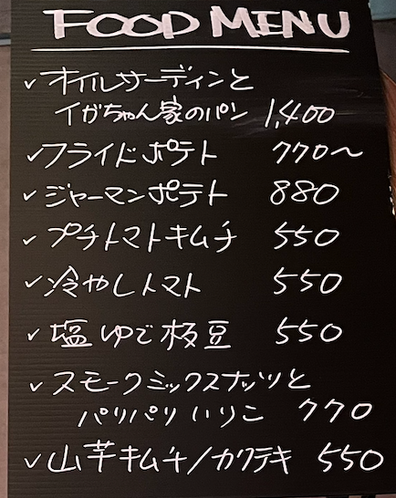 FOOD MENU
✓オイルサーディンと
イガちゃん家のパン 1,400
✓フライドポテト 770〜
✓ジャーマンポテト 880
✓プチトマトキムチ 550
✓冷やしトマト 550
✓塩ゆで枝豆 550
✓スモークミックスナッツと
パリパリいりこ 770
✓山芋キムチ/カクテキ 550